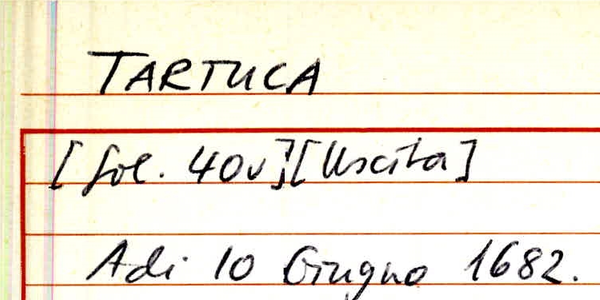 TARTUCA
[fol. 40v][Uscita]
Adi 10 Giugno 1682.